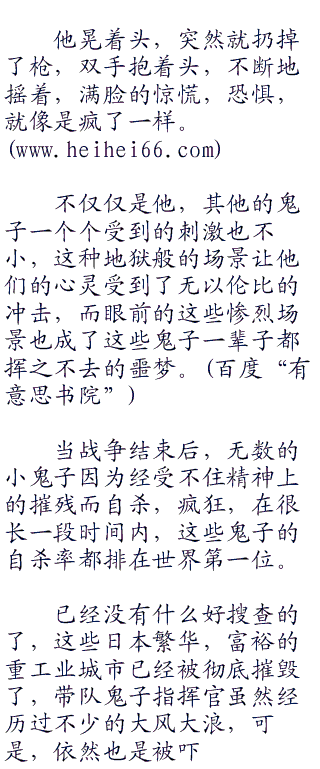 他晃着头，突然就扔掉
了枪，双手抱着头，不断地
摇着，满脸的惊慌，恐惧，
就像是疯了一样。
(www.heihei66.com)
不仅仅是他，其他的鬼
子一个个受到的刺激也不
小，这种地狱般的场景让他
们的心灵受到了无以伦比的
冲击，而眼前的这些惨烈场
景也成了这些鬼子一辈子都
挥之不去的噩梦。(百度“有
意思书院”)
当战争结束后，无数的
小鬼子因为经受不住精神上
的摧残而自杀，疯狂，在很
长一段时间内，这些鬼子的
自杀率都排在世界第一位。
已经没有什么好搜查的
了，这些日本繁华，富裕的
重工业城市已经被彻底摧毁
了，带队鬼子指挥官虽然经
历过不少的大风大浪，可
是，依然也是被吓